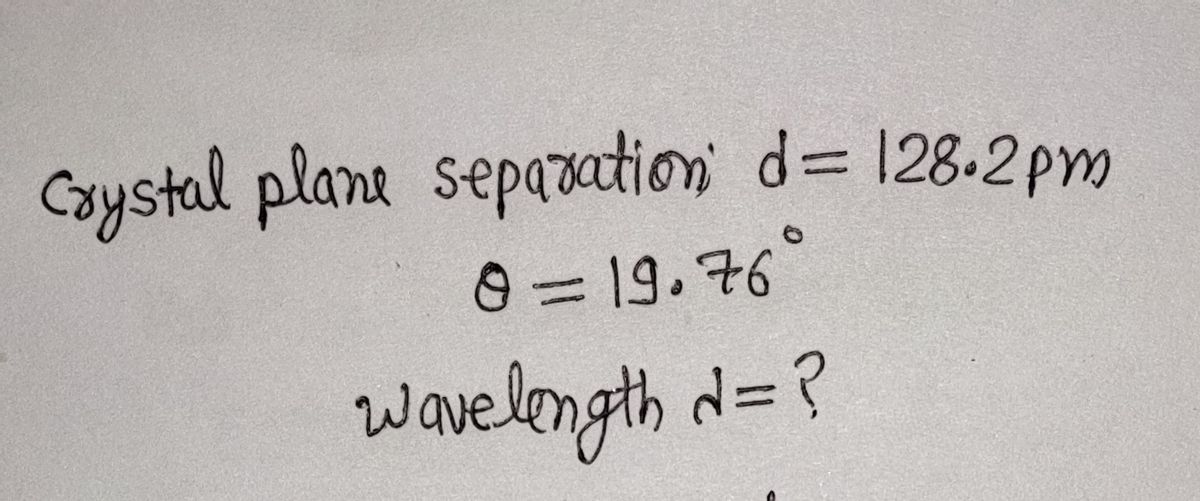 Crystal plane separation; d = 128.2pm
θ = 19.76°
wavelength λ = ?